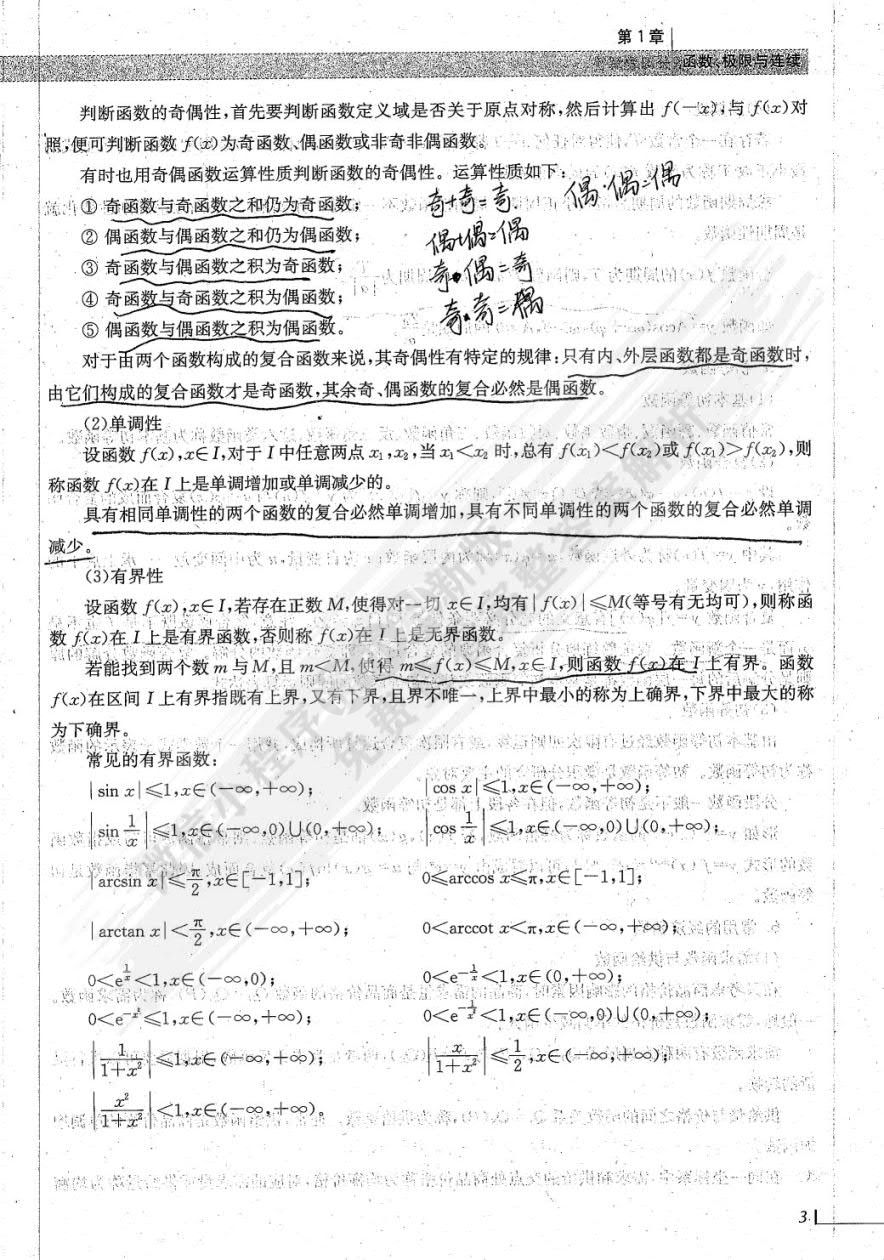 第1章
函数、极限与连续
判断函数的奇偶性,首先要判断函数定义域是否关于原点对称,然后计算出 f(-x),与 f(x)对
照,便可判断函数 f(x)为奇函数、偶函数或非奇非偶函数。
有时也用奇偶函数运算性质判断函数的奇偶性。运算性质如下:
① 奇函数与奇函数之和仍为奇函数; 奇+奇=奇 偶·偶=偶
② 偶函数与偶函数之和仍为偶函数; 偶+偶=偶
③ 奇函数与偶函数之积为奇函数; 奇·偶=奇
④ 奇函数与奇函数之积为偶函数; 奇·奇=偶
⑤ 偶函数与偶函数之积为偶函数。
对于由两个函数构成的复合函数来说,其奇偶性有特定的规律:只有内、外层函数都是奇函数时,
由它们构成的复合函数才是奇函数,其余奇、偶函数的复合必然是偶函数。
(2)单调性
设函数 f(x),x∈I,对于 I 中任意两点 x₁,x₂,当 x₁<x₂ 时,总有 f(x₁)<f(x₂)或 f(x₁)>f(x₂),则
称函数 f(x)在 I 上是单调增加或单调减少的。
具有相同单调性的两个函数的复合必然单调增加,具有不同单调性的两个函数的复合必然单调
减少。
(3)有界性
设函数 f(x),x∈I,若存在正数 M,使得对一切 x∈I,均有|f(x)|≤M(等号有无均可),则称函
数 f(x)在 I 上是有界函数,否则称 f(x)在 I 上是无界函数。
若能找到两个数 m 与 M,且 m<M,使得 m≤f(x)≤M,x∈I,则函数 f(x)在 I 上有界。函数
f(x)在区间 I 上有界指既有上界,又有下界,且界不唯一,上界中最小的称为上确界,下界中最大的称
为下确界。
常见的有界函数:
|sin x|≤1,x∈(-∞,+∞); |cos x|≤1,x∈(-∞,+∞);
|sin 1/x|≤1,x∈(-∞,0)∪(0,+∞); |cos 1/x|≤1,x∈(-∞,0)∪(0,+∞);
|arcsin x|≤π/2,x∈[-1,1]; 0≤arccos x≤π,x∈[-1,1];
|arctan x|<π/2,x∈(-∞,+∞); 0<arccot x<π,x∈(-∞,+∞);
0<e^(1/x)<1,x∈(-∞,0); 0<e^(-1/x)<1,x∈(0,+∞);
0<e^(-x²)≤1,x∈(-∞,+∞); 0<e^(-1/x²)<1,x∈(-∞,0)∪(0,+∞);
|1/(1+x²)|≤1,x∈(-∞,+∞); |x/(1+x²)|≤1/2,x∈(-∞,+∞);
|x²/(1+x²)|<1,x∈(-∞,+∞)。
3